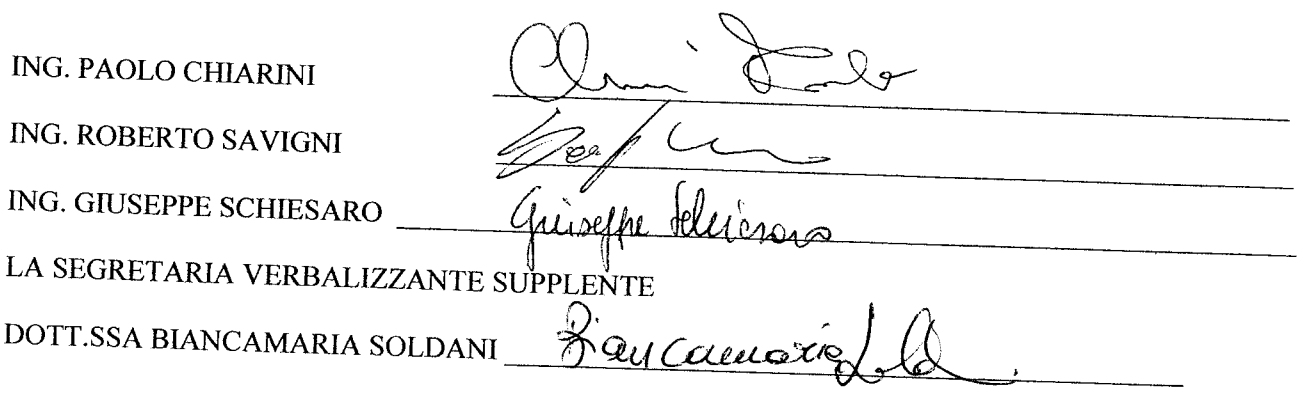 ING. PAOLO CHIARINI
ING. ROBERTO SAVIGNI
ING. GIUSEPPE SCHIESARO Giuseppe Schiesaro
LA SEGRETARIA VERBALIZZANTE SUPPLENTE
DOTT.SSA BIANCAMARIA SOLDANI Biancamaria